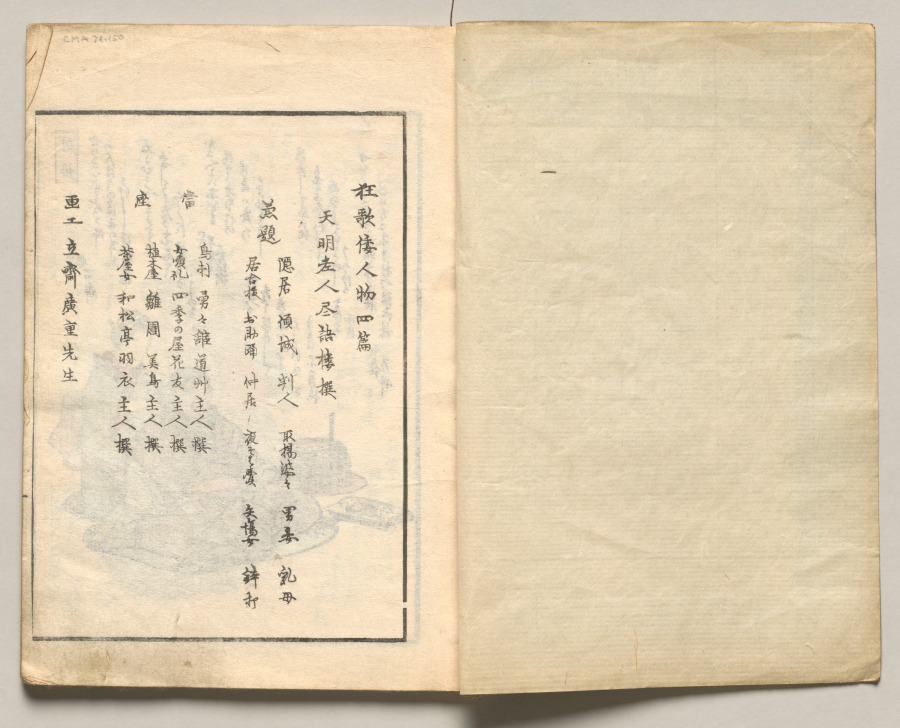 狂歌倭人物四篇
天明老人尽語楼撰
兼題
隠居 傾城 判人 取揚婆々 男妾 乳母
居合抜 お助踊 仲居 矢場女 鉢打
當座
鳥刺 勇々舘道艸主人撰
四季の屋花友主人撰
植木屋 雛園美鳥主人撰
茶屋女 和松亭羽衣主人撰
画工 立齋廣重先生
CMA 76.150